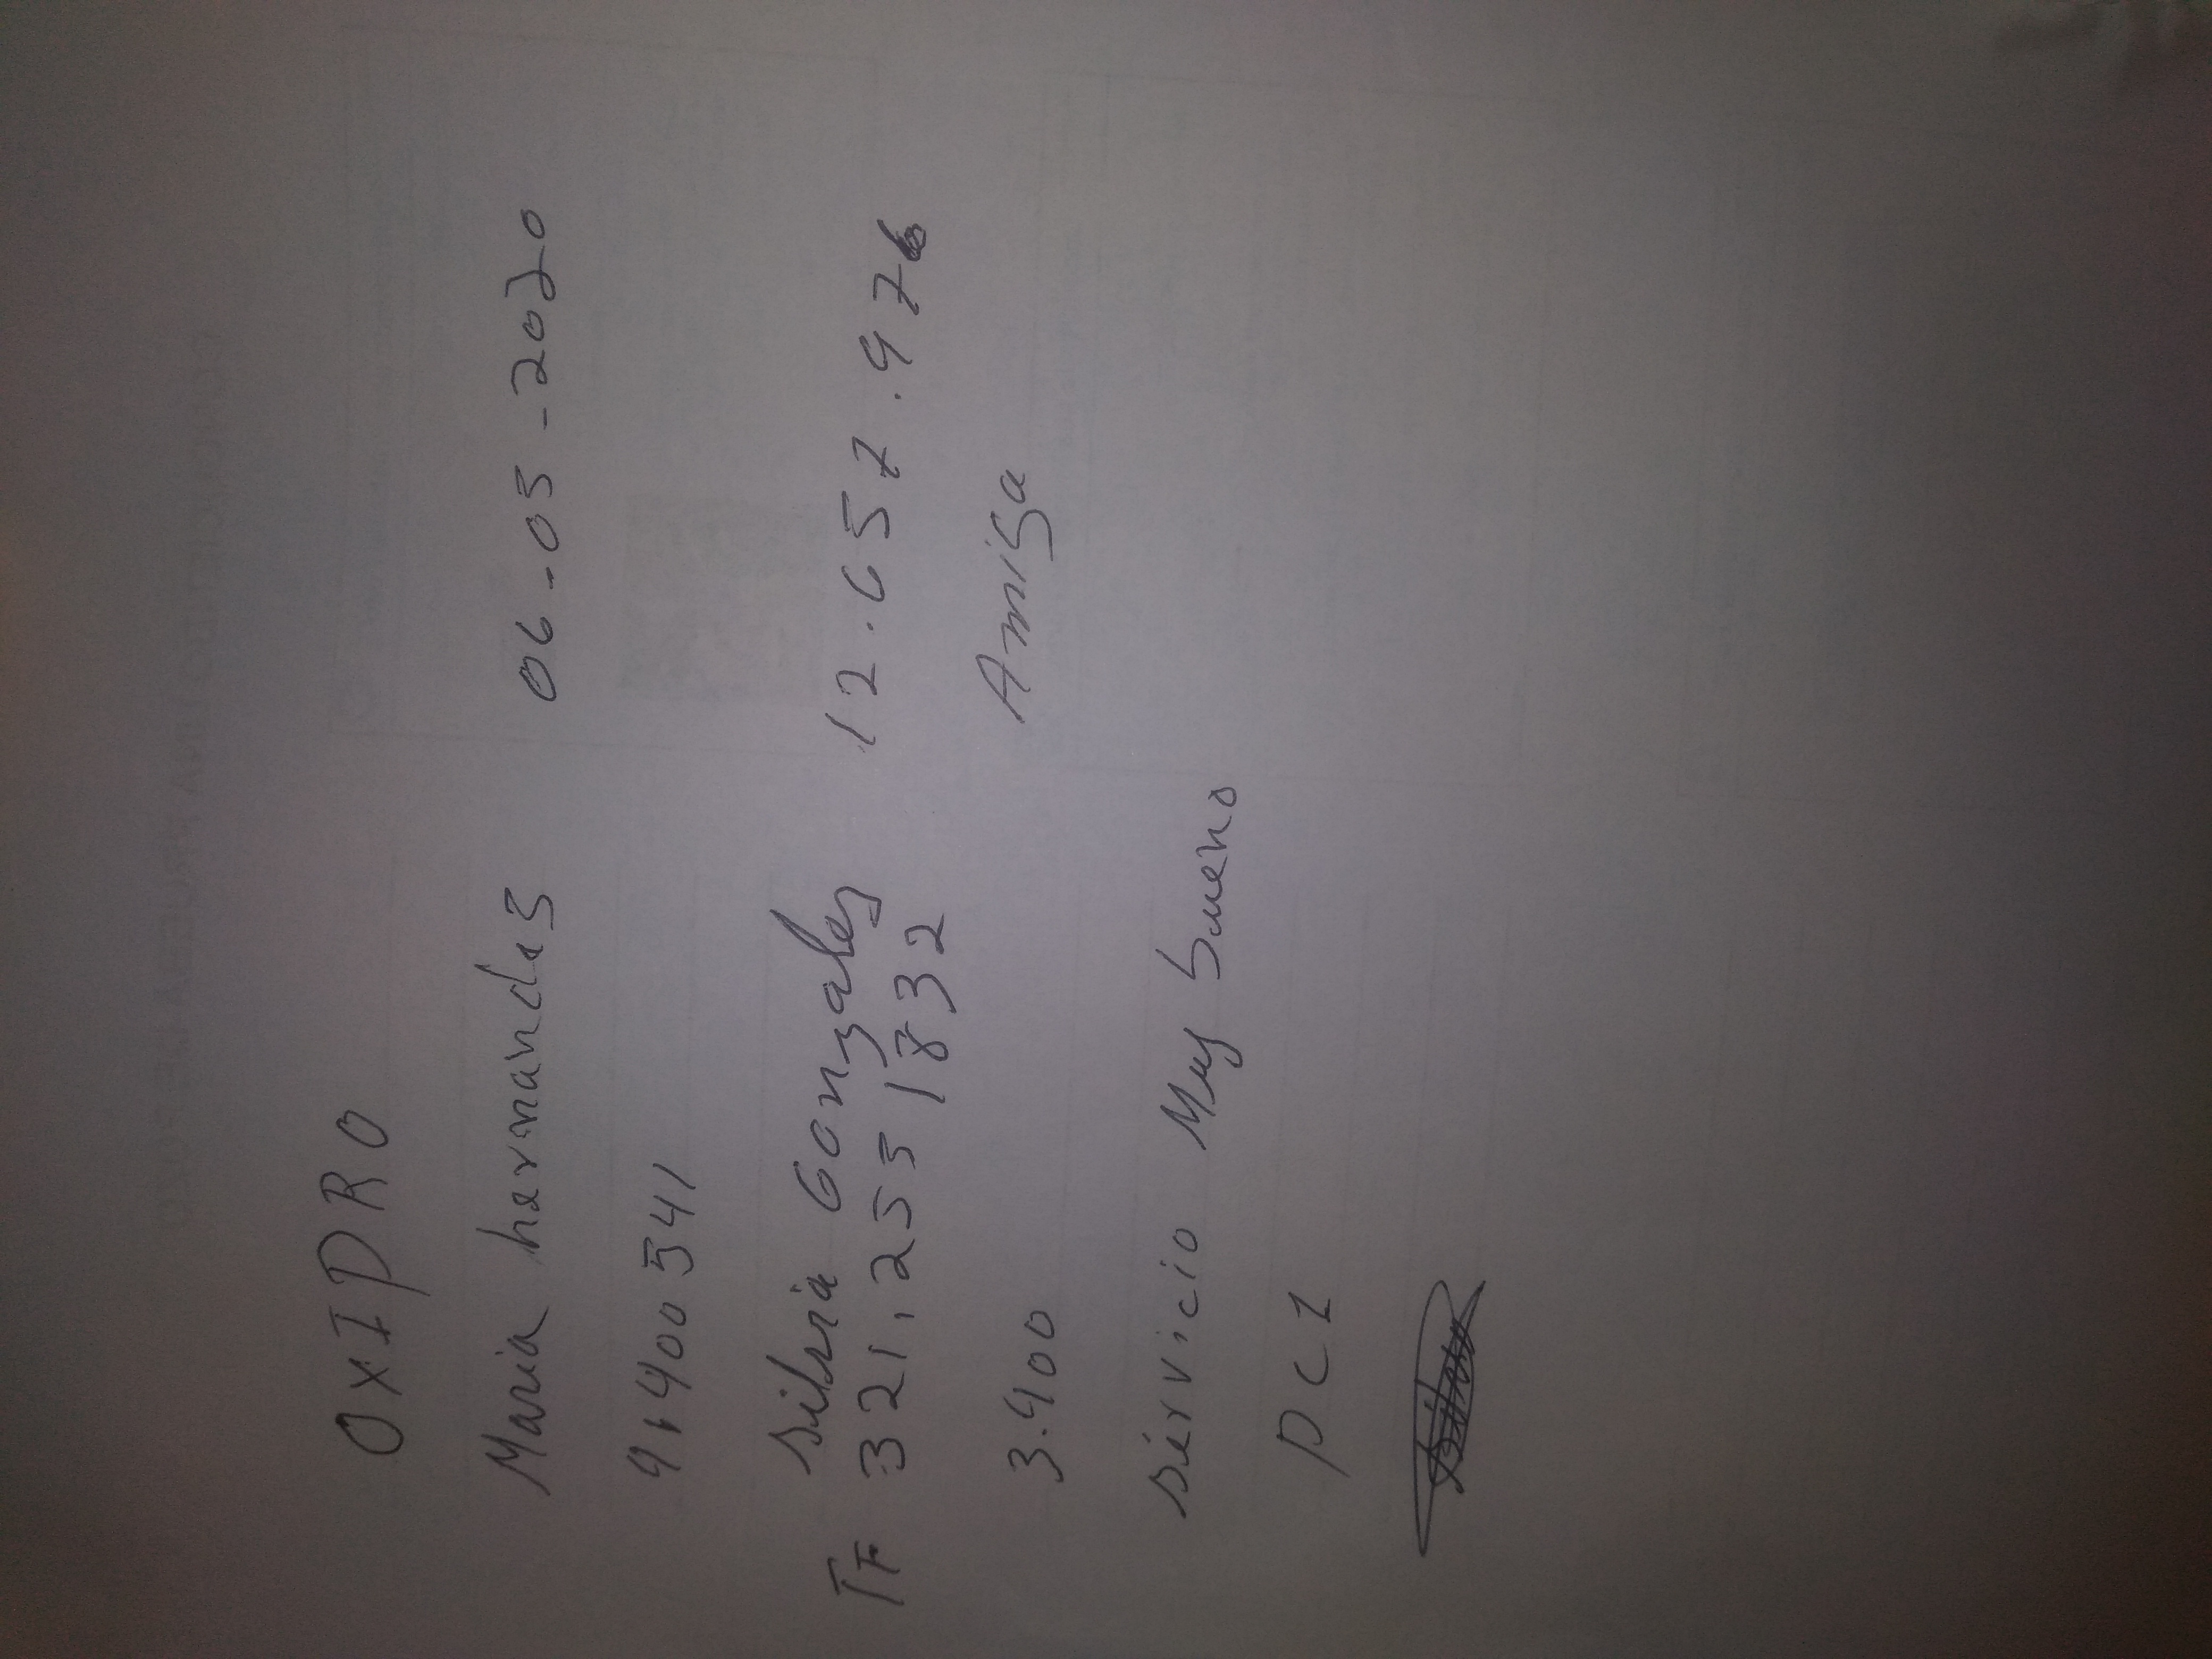 OXIPRO
Maria hernandes 06-03-2020
41400541
Silvia Gonzales 12.657.976
TF 321,2551832 Amiga
3.400
Servicio Muy bueno
PCI